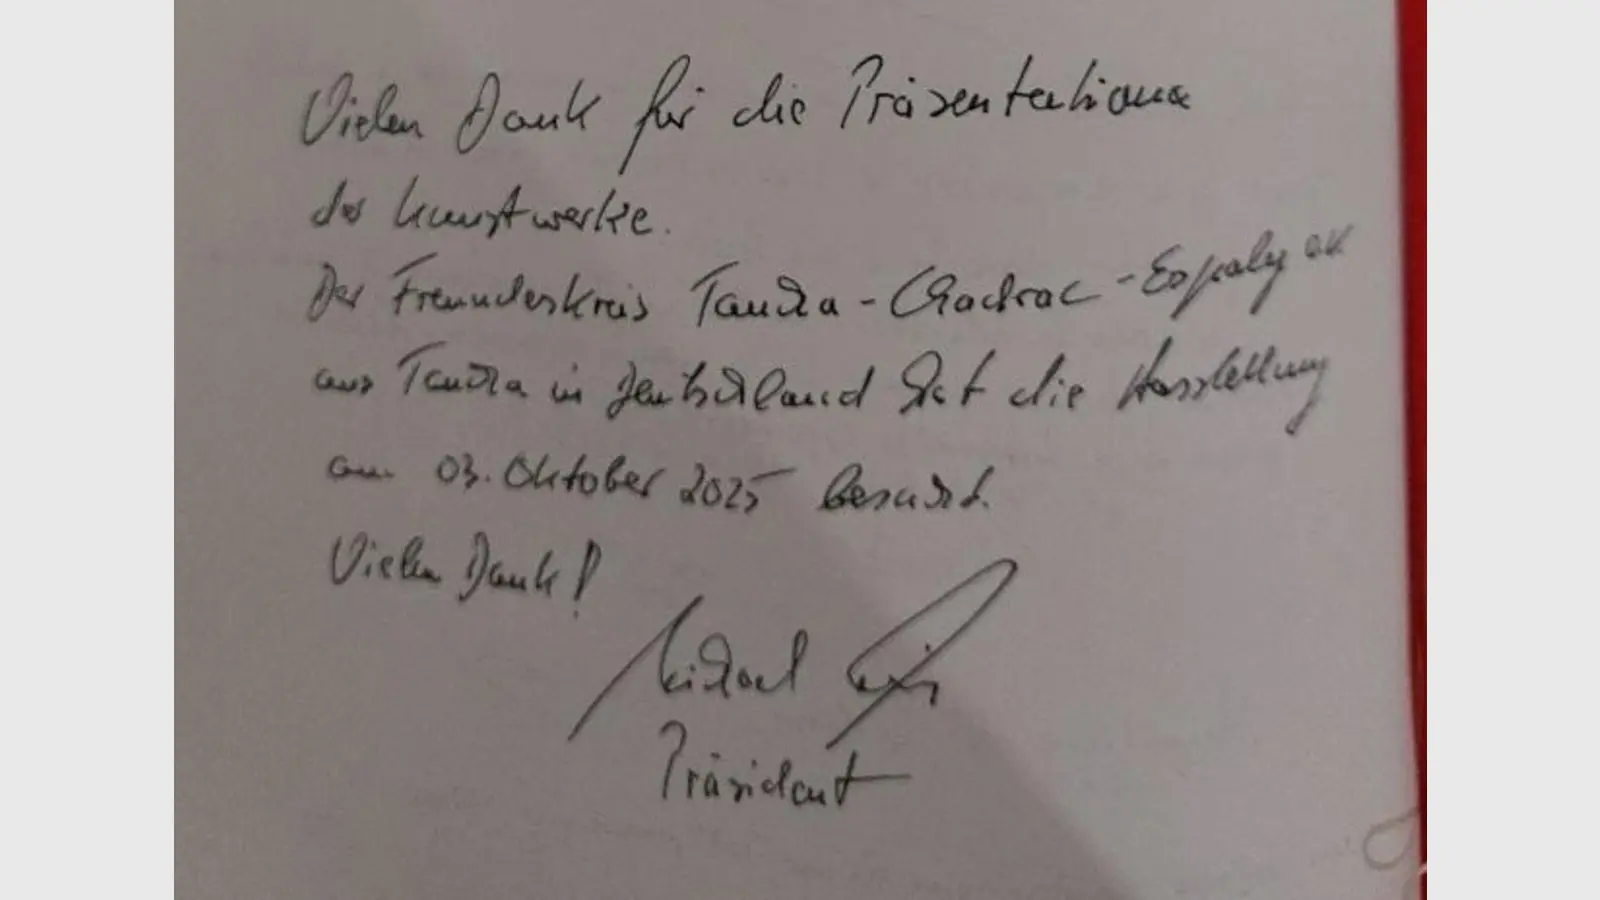 Vielen Dank für die Präsentationen
der Kunstwerke.
Der Freundeskreis Taucha-Chadrac-Espaly e.V.
aus Taucha in Deutschland hat die Ausstellung
am 03. Oktober 2025 besucht.
Vielen Dank!
Michael
Präsident